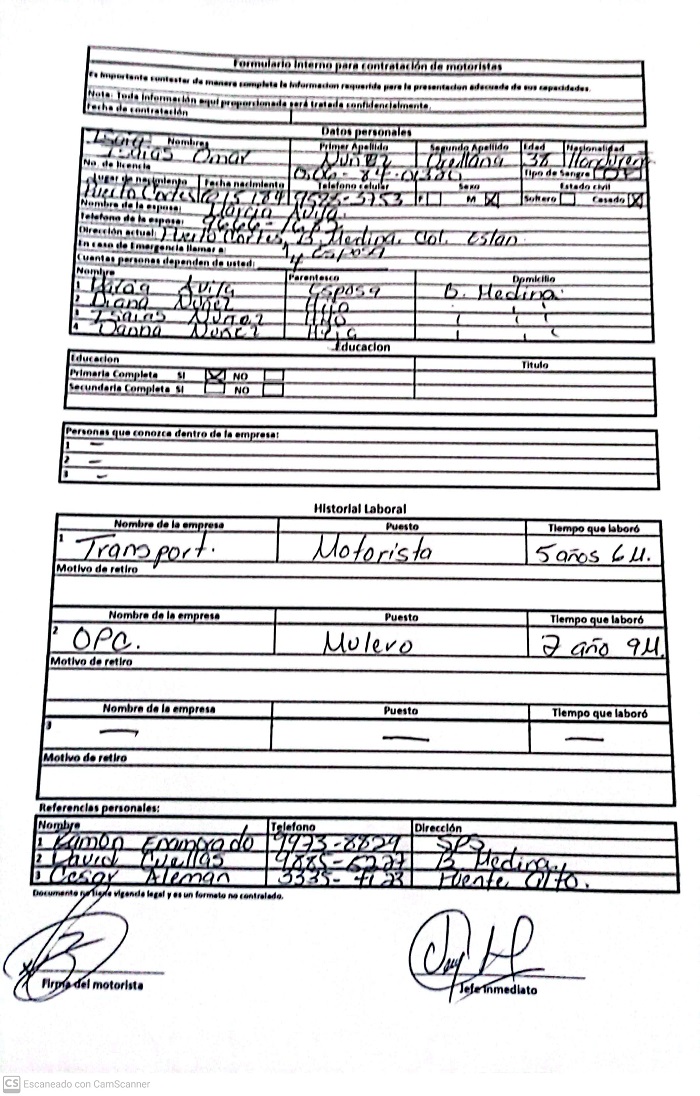 Formulario Interno para contratación de motoristas
Es importante contestar de manera completa la informacion requerida para la presentacion adecuada de sus capacidades.
Nota: Toda información aquí proporcionada será tratada confidencialmente.
Fecha de contratación
Datos personales
Nombres Primer Apellido Segundo Apellido Edad Nacionalidad
Isaias Omar Nuñez Orellana 38 Hondureño
No. de licencia Tipo de Sangre
Lugar de nacimiento Fecha nacimiento Telefono celular Sexo Estado civil
Puerto Cortes 9525-3753 F M X Soltero Casado X
Nombre de la esposa: Avila
Telefono de la esposa:
Dirección actual: Puerto Cortes, B. Medina, Col.
En caso de Emergencia llamar a: Esposa
Cuantas personas dependen de usted: 4
Nombre Parentesco Domicilio
1 Avila Esposa B. Medina
2 Diana Nuñez Hija " "
3 Isaias Nuñez Hijo " "
4 Danna Nuñez Hija " "
Educacion
Educacion Titulo
Primaria Completa SI X NO
Secundaria Completa SI NO
Personas que conozca dentro de la empresa:
1 —
2 —
3 —
Historial Laboral
Nombre de la empresa Puesto Tiempo que laboró
1 Transport. Motorista 5 años 6 M.
Motivo de retiro
Nombre de la empresa Puesto Tiempo que laboró
2 OPC. Mulero 2 año 9 M.
Motivo de retiro
Nombre de la empresa Puesto Tiempo que laboró
3 — — —
Motivo de retiro
Referencias personales:
Nombre Telefono Dirección
1 Ramón Enamorado 9973-8829 SPS
2 David Cuellas 9885-6227 B. Medina
3 Cesar Aleman 3335-7123 Puente Alto.
Documento no tiene vigencia legal y es un formato no controlado.
Firma del motorista Jefe inmediato
CS Escaneado con CamScanner